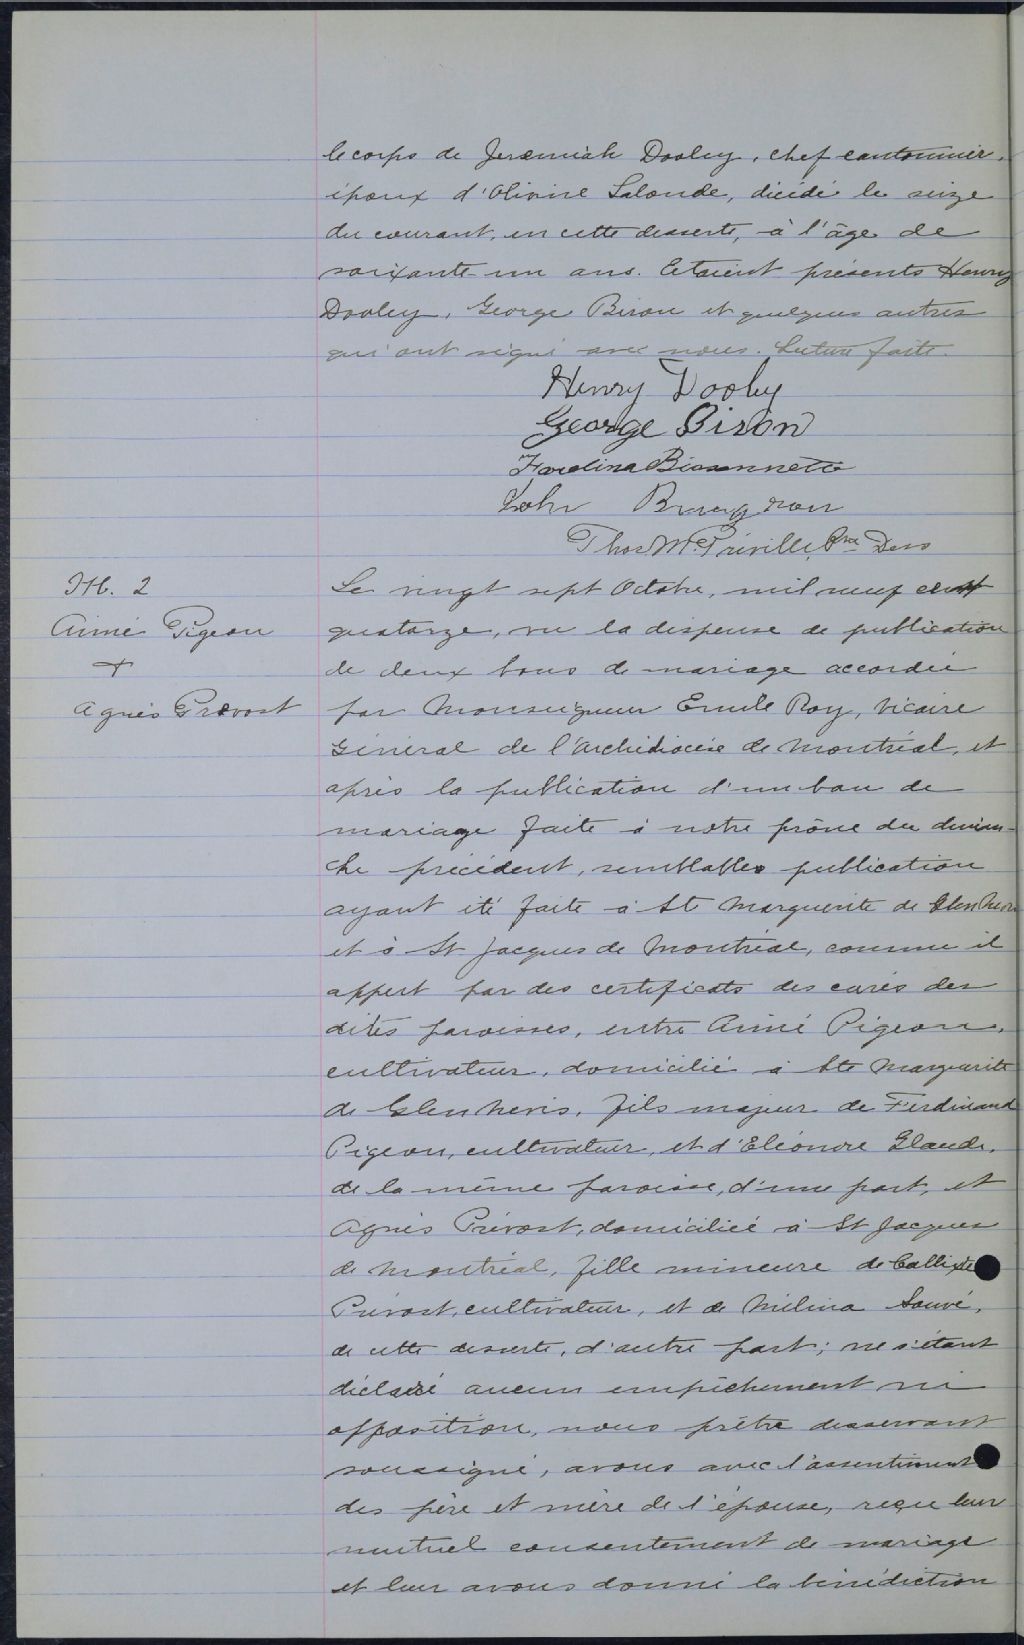 le corps de Jeremiah Dooley, chef cantonnier,
époux d'Olivine Lalonde, décédé le seize
du courant, en cette desserte, à l'âge de
soixante-un ans. Etaient présents Henry
Dooley, George Biron et quelques autres
qui ont signé avec nous. Lecture faite.
Henry Dooley
George Biron
Bissonnette
John
Thos M. Préville, Ptre Dess
M. 2
Aimé Pigeon
+
Agnès Prévost
Le vingt sept Octobre, mil neuf cent
quatorze, vu la dispense de publication
de deux bans de mariage accordée
par Monseigneur Emile Roy, Vicaire
Général de l'archidiocèse de Montréal, et
après la publication d'un ban de
mariage faite à notre prône du diman-
che précédent, semblables publication
ayant été faite à Ste Marguerite de
et à St Jacques de Montréal, comme il
appert par des certificats des curés des
dites paroisses, entre Aimé Pigeon,
cultivateur, domicilié à Ste Marguerite
de Glen Nevis, fils majeur de Ferdinand
Pigeon, cultivateur, et d'Eléonore Glaude,
de la même paroisse, d'une part, et
Agnès Prévost, domiciliée à St Jacques
de Montréal, fille mineure de Callixte
Prévost, cultivateur, et de Mélina Sauvé,
de cette desserte, d'autre part; ne s'étant
déclaré aucun empêchement ni
opposition, nous prêtre desservant
soussigné, avons avec l'assentiment
des père et mère de l'épouse, reçu leur
mutuel consentement de mariage
et leur avons donné la bénédiction